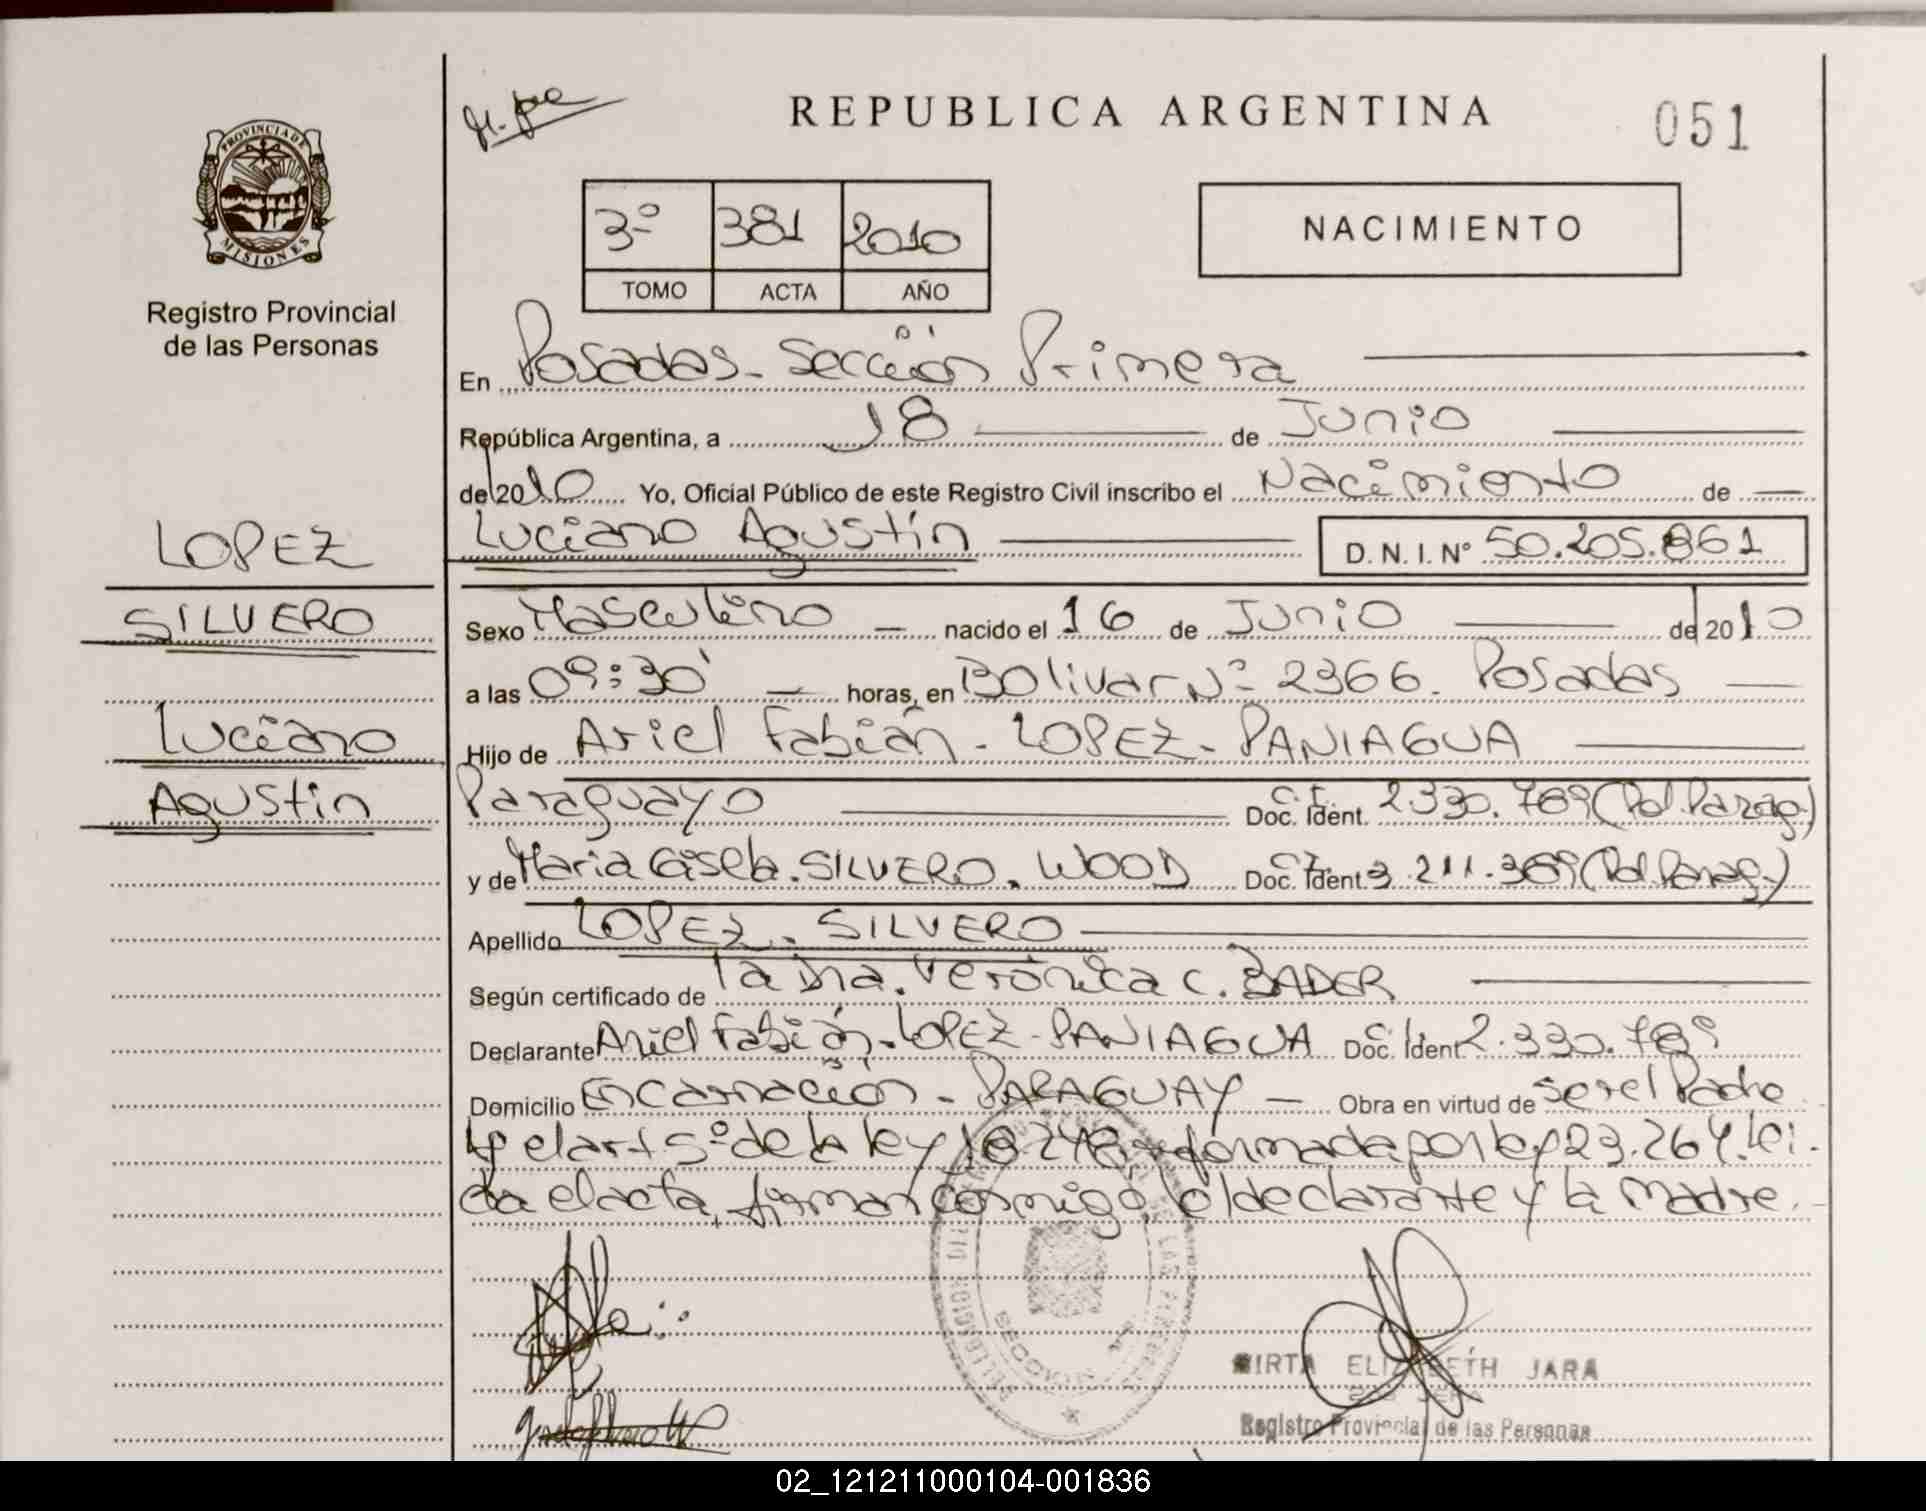 REPUBLICA ARGENTINA
051
PROVINCIA DE
MISIONES
Registro Provincial
de las Personas
3º 381 2010
TOMO ACTA AÑO
NACIMIENTO
En Posadas - Sección Primera
República Argentina, a 18 de Junio
de 2010 Yo, Oficial Público de este Registro Civil inscribo el Nacimiento de
Luciano Agustín D. N. I. Nº 50.205.861
LOPEZ
SILVERO
Luciano
Agustín
Sexo Masculino nacido el 16 de Junio de 2010
a las 09:30' horas, en Bolivar Nº 2366. Posadas
Hijo de Ariel Fabián - LOPEZ - PANIAGUA
Paraguayo C.I. Doc. Ident. 2.330.789 (Pol. Parag.)
y de Maria Gisela. SILVERO. WOOD C.I. Doc. Ident. 3.211.369 (Pol. Parag.)
Apellido LOPEZ - SILVERO
Según certificado de la Dra. Verónica C. BADER
Declarante Ariel Fabián - LOPEZ - PANIAGUA C.I. Doc. Ident 2.330.789
Domicilio Encarnación - PARAGUAY Obra en virtud de ser el Padre
y el art 5º de la ley 18.248 reformada por ley 23.264. Lei-
da el acta, firman conmigo, el declarante y la madre.
SECCION
MIRTA ELIZABETH JARA
Registro Provincial de las Personas
02_121211000104-001836